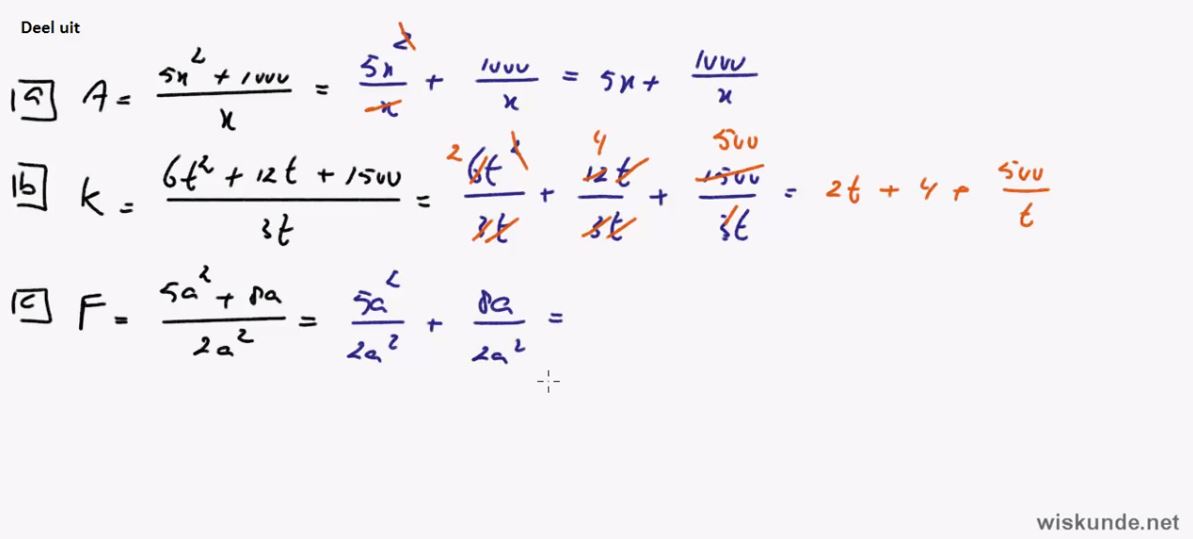 Deel uit
1a A = (5x² + 1000)/x = 5x²/x + 1000/x = 5x + 1000/x
1b K = (6t² + 12t + 1500)/3t = 2 6t²/3t + 4 12t/3t + 500 1500/3t = 2t + 4 + 500/t
1c F = (5a² + 8a)/2a² = 5a²/2a² + 8a/2a² =
wiskunde.net